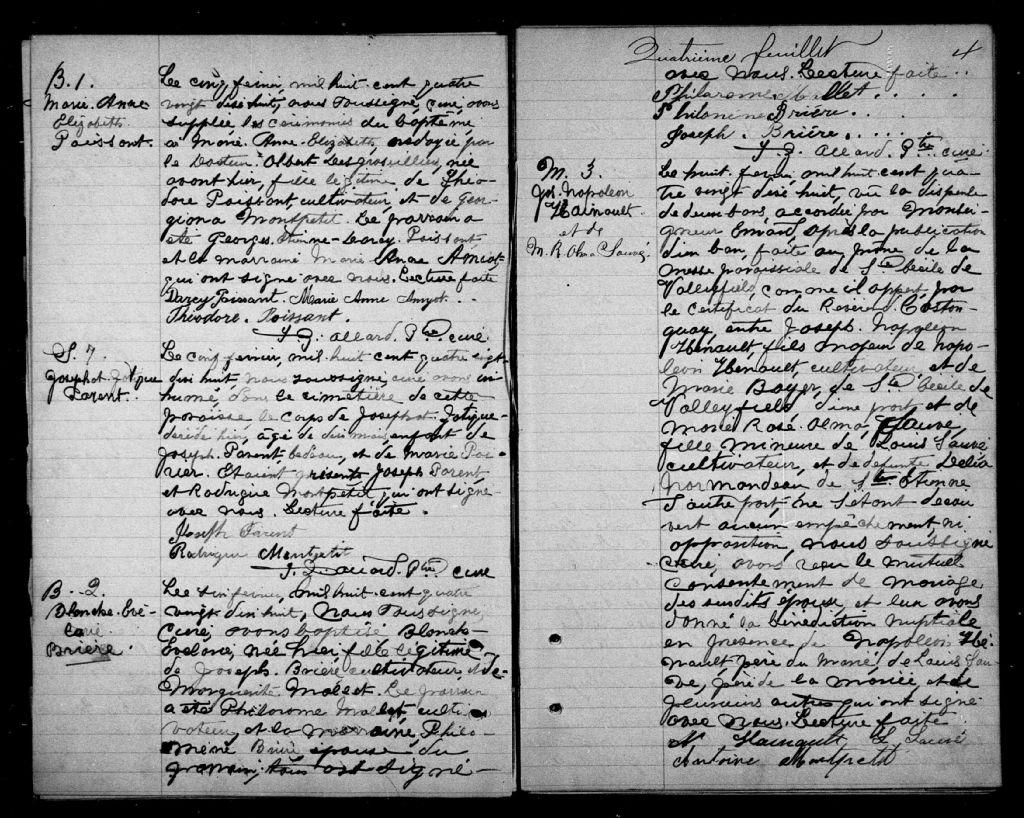 B. 1.
Marie. Anne
Elizabeth
Poissant.
Le cinq fevrier, mil huit cent quatre
vingt dix huit, nous soussigné, curé, avons
supplée les cérémonies du baptême
à Marie. Anne. Elizabeth, ondoyée par
le Docteur Albert Desgroseilliers, née
avant hier, fille légitime de Théo-
dore Poissant, cultivateur, et de Geor-
giona Montpetit. Le parrain a
été Georges. Etienne. Darcy. Poissant
et la marraine Marie Anne Amiot
qui ont signé avec nous. Lecture faite
Darcy Poissant. Marie Anne Amyot. . .
Théodore. Poissant.
J. Z. Allard. Ptre curé
S. 7.
Josephat.
Parent.
Le cinq fevrier, mil huit cent quatre vigt
dix huit nous soussigné, curé avons in
humé, dans le cimetière de cette
paroisse le corps de Josephat.
décédé hier, âgé de dix mois enfant de
Joseph. Parent bedeau, et de Marie Poi-
rier. Etaient présents Joseph Parent
et Rodrigue Montpetit qui ont signé
avec nous. Lecture faite.
Joseph Parent
Rodrigue Montpetit
J. Z. Allard. Ptre curé
B. 2.
Blanche. Eve-
Brière.
Le six fevrier, mil huit cent quatre
vingt dix huit, nous soussigné,
curé, avons baptisé Blanche-
née hier fille légitime
de Joseph. Brière cultivateur, et de
Marguerite Mallet. Le parrain
a été Philorome Mallet culti-
vateur, et la marraine, Philo-
mène Brière épouse du
parrain, tous ont signé-
Quatrième feuillet
4
avec nous. Lecture faite. .
Philorome Mallet. . . .
Philomène Brière. . . .
Joseph. Brière. . . . .
J. Z. Allard. Ptre curé
M. 3.
Jos. Napoleon
Hainault.
et de
M. R. Alma Sauvé.
Le huit fevrier mil huit cent qua
tre vingt dix huit, vu la dispense
de deux bans, accordée par Monsei-
gneur Emard, après la publication
d'un ban, faite au prône de la
messe paroissiale de Ste Cécile de
Valleyfield, comme il appert par
le certificat du Révérend Caston-
guay, entre Joseph. Napoleon
Hénault, fils majeur de Napo-
léon Hénault, cultivateur, et de
Marie Boyer, de Ste Cécile de
Valleyfield, d'une part et de
Marie Rosé. Alma, Sauvé,
fille mineure de Louis Sauvé
cultivateur, et de defunte Delia
Normandeau de St Etienne
d'autre part, ne s'étant décou
vert aucun empêchement, ni
opposition, nous soussigné
curé, avons reçu le mutuel
consentement de mariage
des susdits époux, et leur avons
donné la bénédiction nuptiale
en présence de Napoléon Hé-
nault père du marié, de Louis Sau-
vé, père de la mariée, et de
plusieurs autres qui ont signé
avec nous. Lecture faite
N. Hainault L. Sauvé
Antoine Montpetit